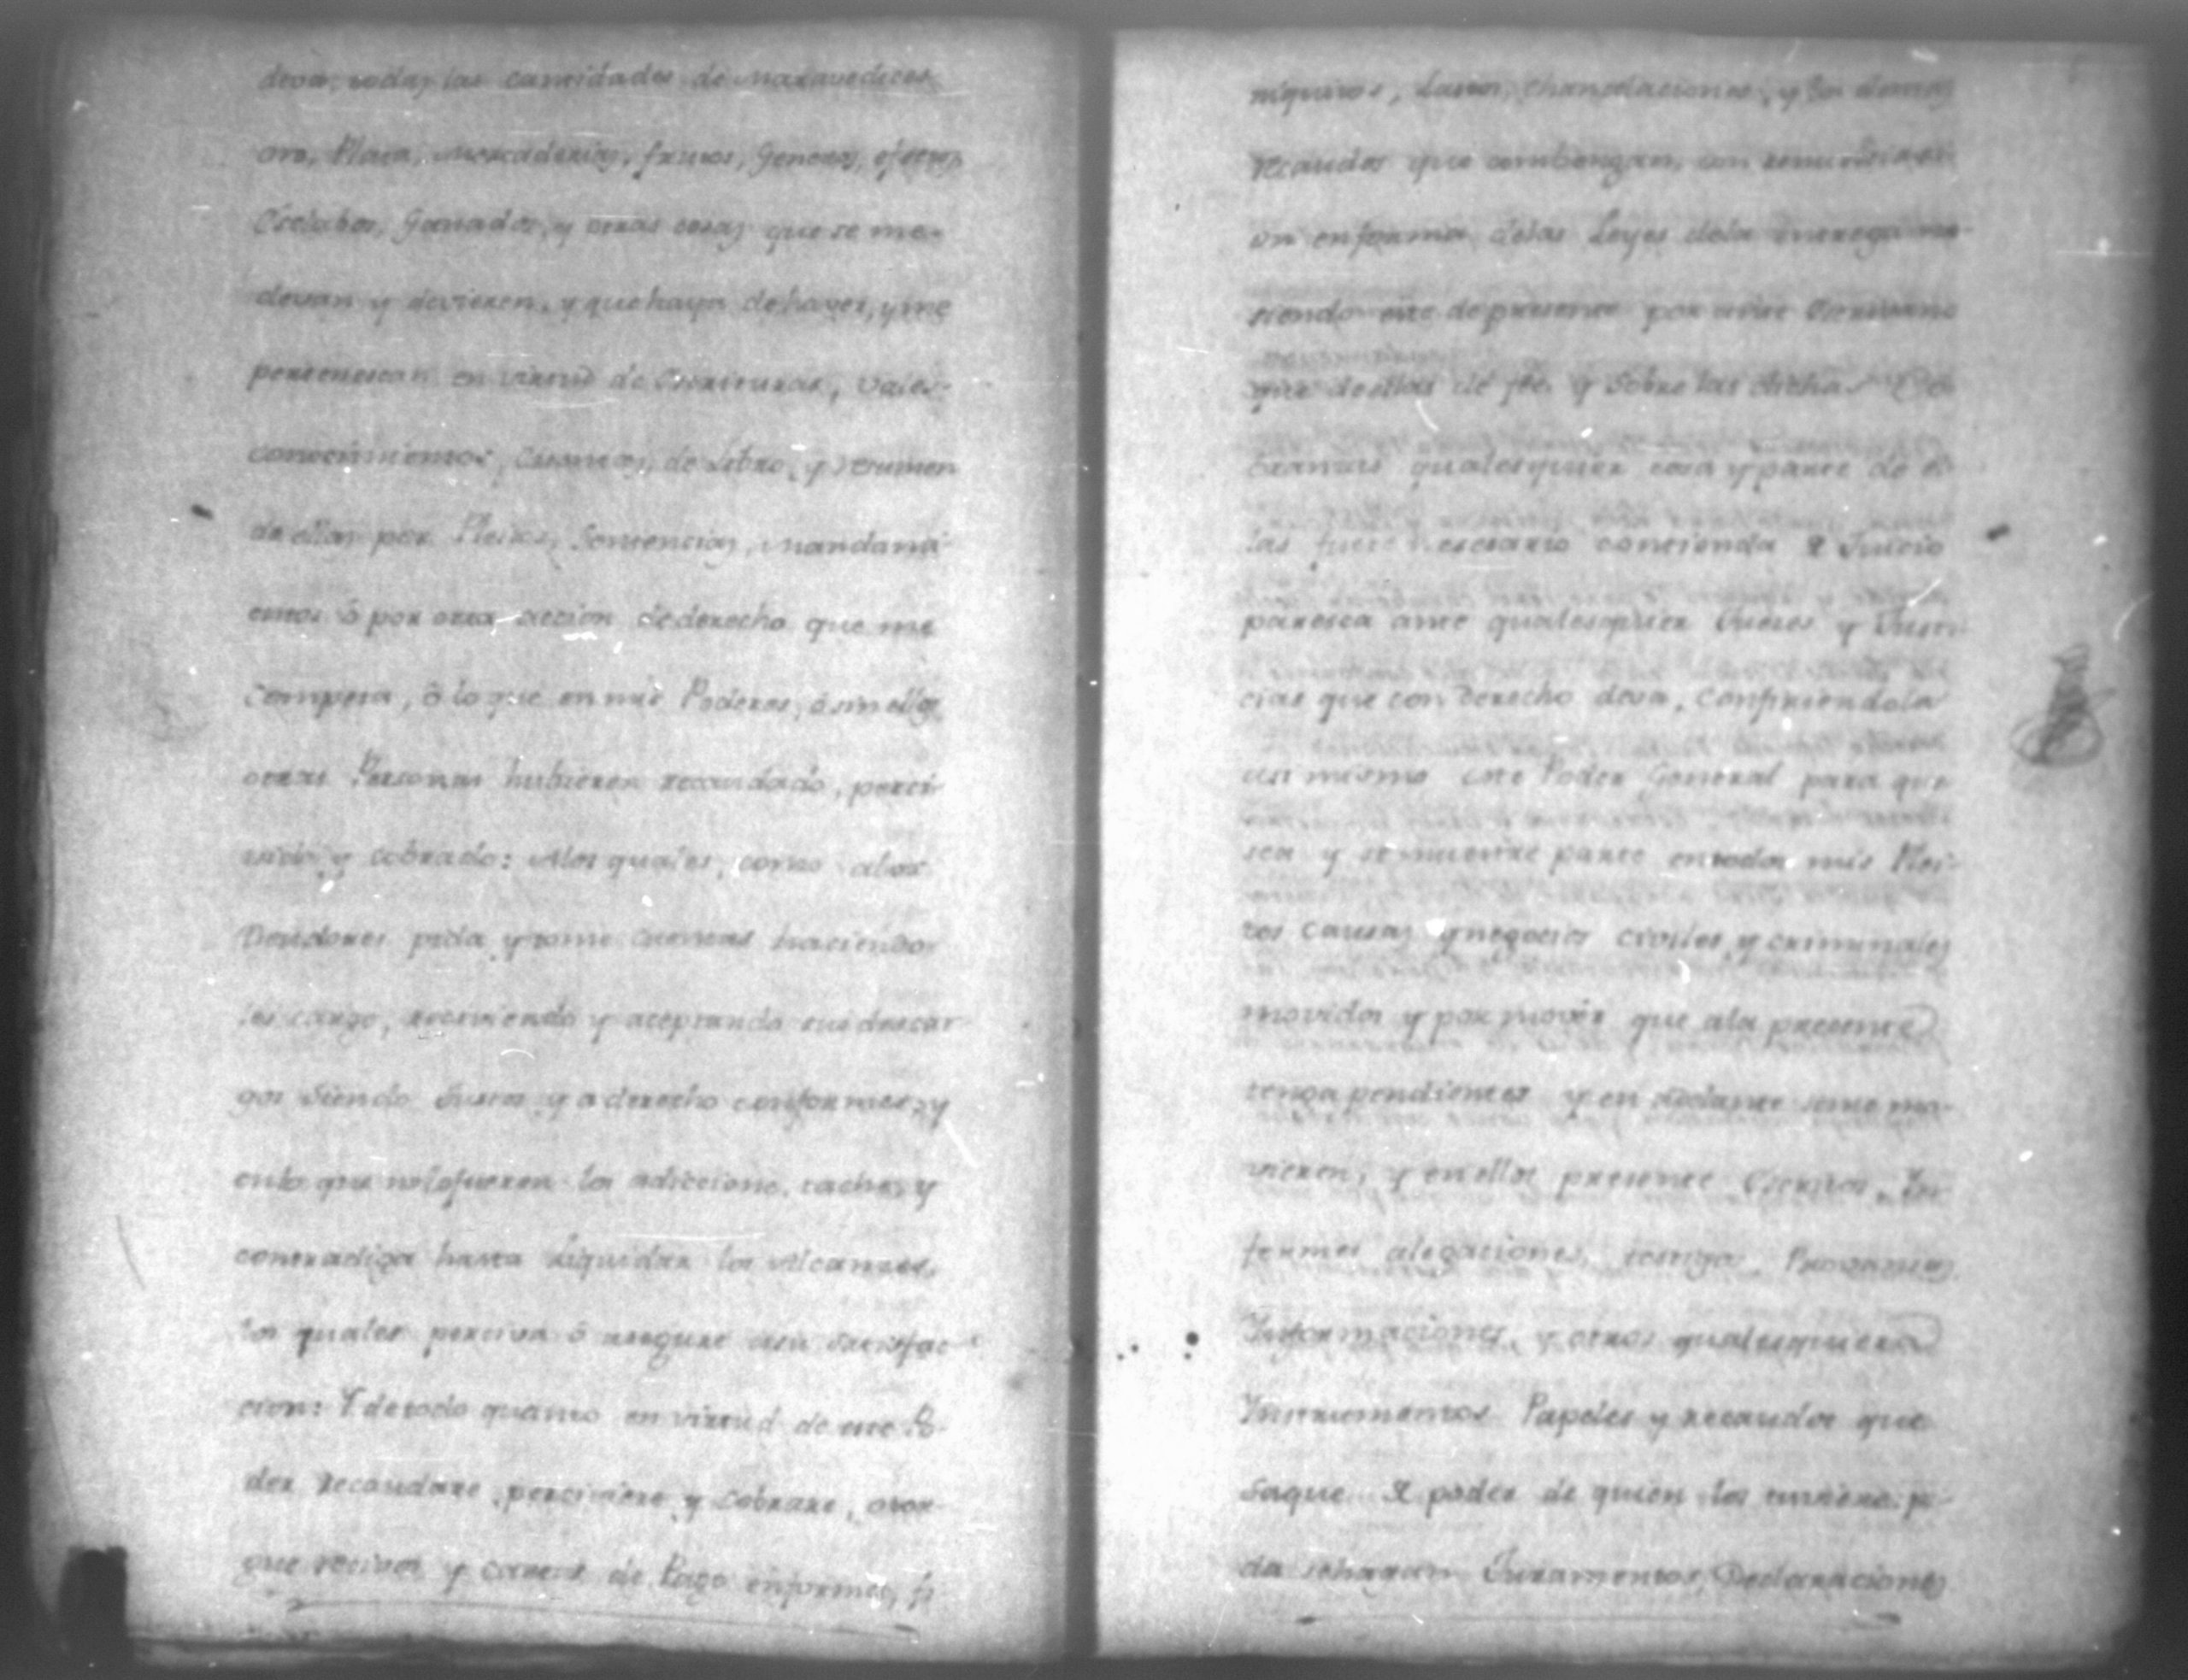 deva, todas las cantidades de maravedices
oro, Plata, Mercaderias, frutos, Generos, efectos,
Esclabos, Ganados, y otras cosas que se me
devan y devieren, y que haya de haver, y me
pertenescan en virtud de Escrituras, Vales-
conocimientos, Cuentas, de Libro, y resumen
de ellas por Pleitos, Sentencias, mandami-
entos ó por otra accion de derecho que me
competa, ó lo que en mis Poderes, ó sin ellos
otras Personas hubieren recaudado, perci-
vido y cobrado: Alos quales, como alos
Deudores pida y tome cuentas haciendo
les cargo, reciviendo y aceptando sus descar-
gos siendo Justos y a derecho conformes, y
enlo que nolofueren los adiccione, tache, y
contradiga hasta Liquidar los Alcanzes,
los quales perciva ó asegure asu satisfac-
cion: Y detodo quanto en virtud de este Po-
der recaudare, perciviere y cobrare, otor-
gue recivos y cartas de Pago enformes, fi-
niquitos, Lastos, Chancelaciones, y los demas
recaudos que combengan, con renunciaci-
on enforma delas Leyes dela entrega no
siendo esta depresente por ante Escrivano
que deellas dé fee. y Sobre las dichas Co-
branzas qualesquier cosa y parte de e-
llas fuere necesario contienda de Juicio
paresca ante qualesquier Jueces y Justi-
cias que con derecho deva, Confiriendola
asi mismo este Poder General para que
sea y se muestre parte entodos mis Plei-
tos causas y negocios civiles, y criminales
movidos y por mover que ala presente
tenga pendientes y en adelante seme mo-
vieren, y en ellos presente Escritos, In-
formes alegaciones, testigos, Provanzas,
Informaciones, y otros qualesquiera
Instrumentos Papeles y recaudos que
Saque de poder de quien los tuviere: pi-
da sehagan Juramentos, Declaraciones